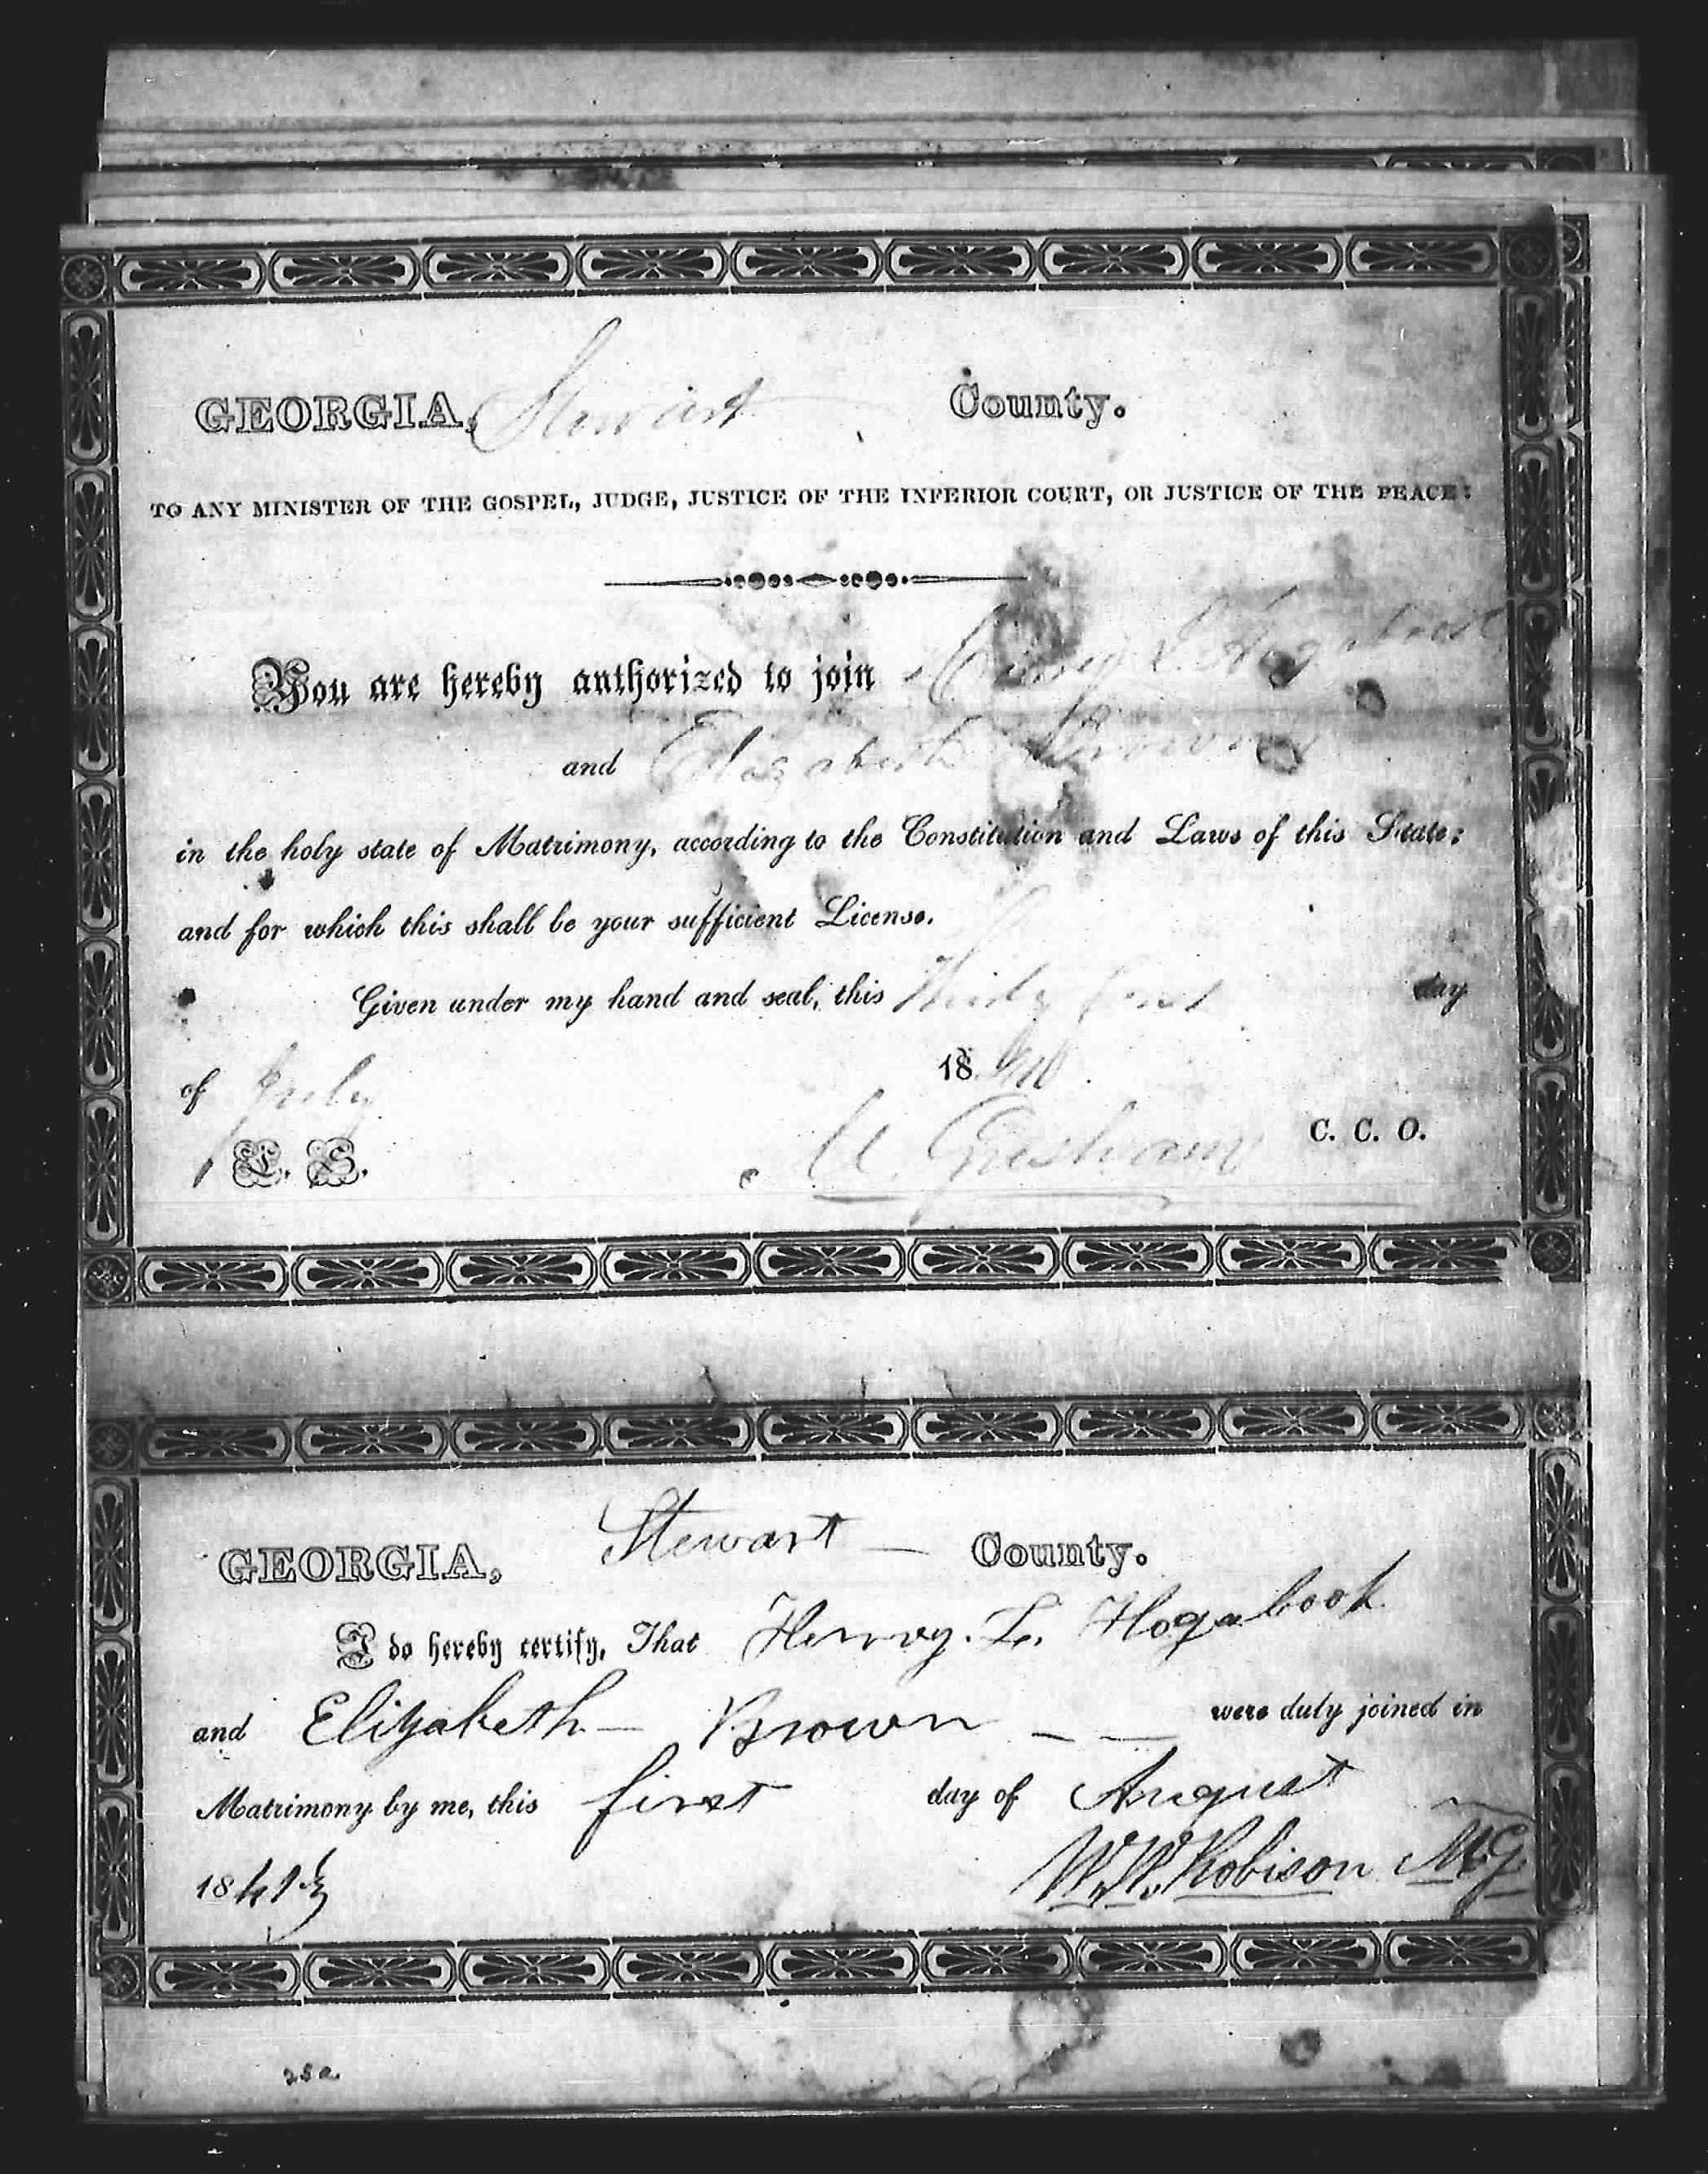 GEORGIA, Stewart County.
TO ANY MINISTER OF THE GOSPEL, JUDGE, JUSTICE OF THE INFERIOR COURT, OR JUSTICE OF THE PEACE:
You are hereby authorized to join Henry L. Hogabook
and Elizabeth Brown
in the holy state of Matrimony, according to the Constitution and Laws of this State:
and for which this shall be your sufficient License.
Given under my hand and seal, this Thirty first day
of July 18
L. S. Gresham C. C. O.
GEORGIA, Stewart County.
I do hereby certify, That Henry. L. Hogabook
and Elizabeth Brown were duly joined in
Matrimony by me, this first day of August
184 W. W. Robison M.G.